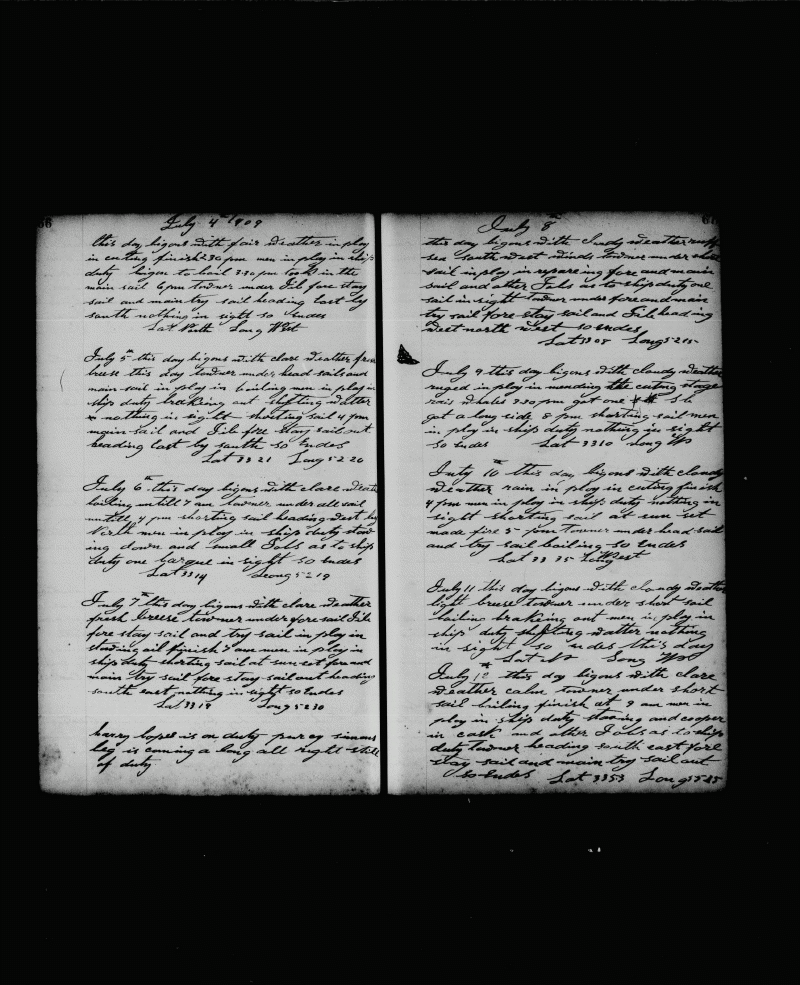 66
July 4th 1909
this day bigons with fair weather in ploy
in cuting finish 2 30 pm men in ploy in ship
duty bigon to boil 3 30 pm took in the
main sail 6 pm towner under Jib fore stay
sail and main try sail heading East by
south nothing in sight so Endes
Lat North Long West
July 5th this day bigons with clare weather fresh
breese this day towner under head sails and
main sail in ploy in boiling men in ploy in
ship duty braking out shifting watter
nothing in sight shorting sail 4 pm
main sail and Jib fore stay sail out
heading East by south so Endes
Lat 33 21 Long 52 20
July 6th this day bigons with clare weather
boiling untill 7 am towner under all sail
untill 4 pm shorting sail heading West by
North men in ploy in ship duty stow
ing down and small Jobs as to ship
duty one barque in sight so Endes
Lat 33 14 Leong 52 19
July 7th this day bigons with clare weather
fresh breese towner under fore sail Jib
fore stay sail and try sail in ploy in
stowing oil finish am men in ploy in
ship duty shorting sail at sun set fore and
main try sail fore stay sail out heading
south east nothing in sight so Endes
Lat 33 18 Long 52 30
harry lopes is on duty
leg is coming a long all right still
of duty
July 8th
this day bigons with Cludy weather
sea south west winds towner under short
sail in ploy in repareing fore and main
sail and other Jobs as to ship duty one
sail in sight towner under fore and main
try sail fore stay sail and Jib heading
West north West so Endes
Lat 33 08 Long 52 15
July 9 this day bigons with cloudy weather
ruged in ploy in mending the cuting stage
rais whales 3 30 pm got one
got a long side 8 pm shorting sail men
in ploy in ship duty nothing in sight
so Endes Lat 33 10 Long W
July 10th this day bigons with cloudy
weather rain in ploy in cuting finish
4 pm men in ploy in ship duty nothing in
sight shorting sail at sun set
made fire 5 pm towner under head sail
and try sail boiling so Endes
Lat 33 35 Long West
July 11 this day bigons with cloudy weather
light breese towner under short sail
boiling brakeing out men in ploy in
ship duty shifting watter nothing
in sight so Endes this day
Lat N Long W
July 12th this day bigons with clare
weather calm towner under short
sail boiling finish at 9 am men in
ploy in ship duty stowing and cooper
in cask and other Jobs as to ship
duty towner heading south east fore
stay sail and main try sail out
so Endes Lat 33 53 Long